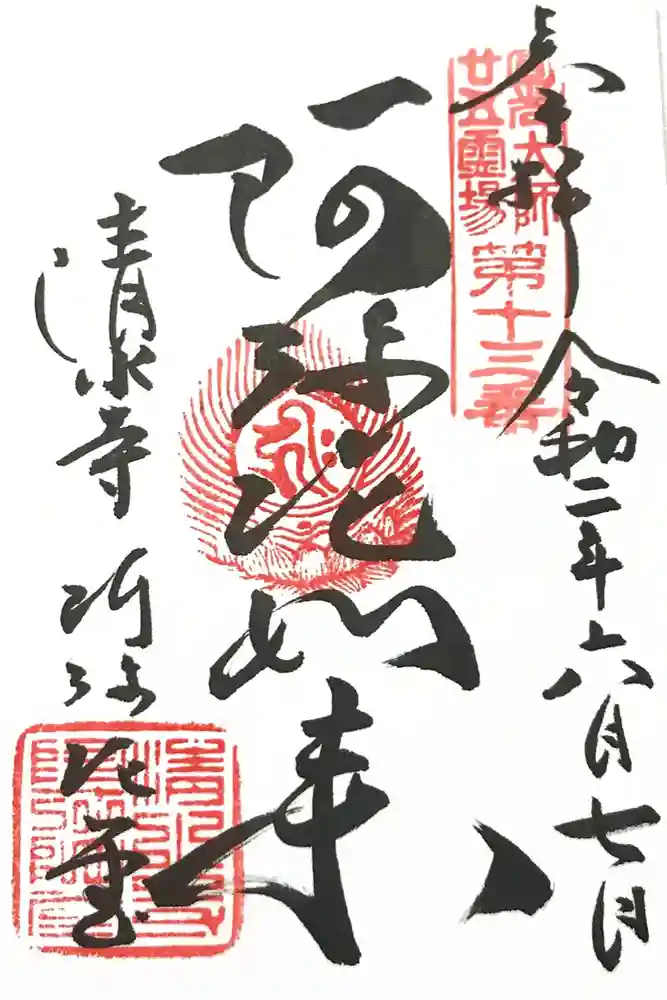 奉拝 令和二年六月七日
圓光大師
廿五霊場
第十三番
阿弥陀如来
清水寺 阿弥陀堂